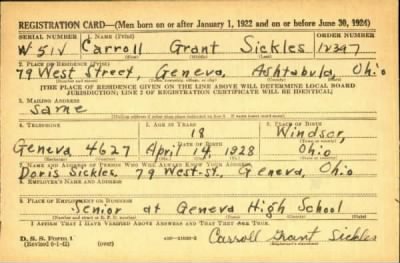 REGISTRATION CARD—(Men born on or after January 1, 1922 and on or before June 30, 1924)
SERIAL NUMBER 1. NAME (Print) ORDER NUMBER
W 511 Carroll Grant Sickles 12397
2. PLACE OF RESIDENCE (Print)
79 West Street, Geneva, Ashtabula, Ohio
[THE PLACE OF RESIDENCE GIVEN ON THE LINE ABOVE WILL DETERMINE LOCAL BOARD
JURISDICTION; LINE 2 OF REGISTRATION CERTIFICATE WILL BE IDENTICAL]
3. MAILING ADDRESS
Same
4. TELEPHONE 5. AGE IN YEARS 6. PLACE OF BIRTH
18 Windsor,
Geneva 4627 April 14 1928 Ohio
7. NAME AND ADDRESS OF PERSON WHO WILL ALWAYS KNOW YOUR ADDRESS
Doris Sickles, 79 West st., Geneva, Ohio
8. EMPLOYER'S NAME AND ADDRESS
9. PLACE OF EMPLOYMENT OR BUSINESS
Senior at Geneva High School
I AFFIRM THAT I HAVE VERIFIED ABOVE ANSWERS AND THAT THEY ARE TRUE.
D. S. S. Form 1
(Revised 6-1-42) (over)
Carroll Grant Sickles